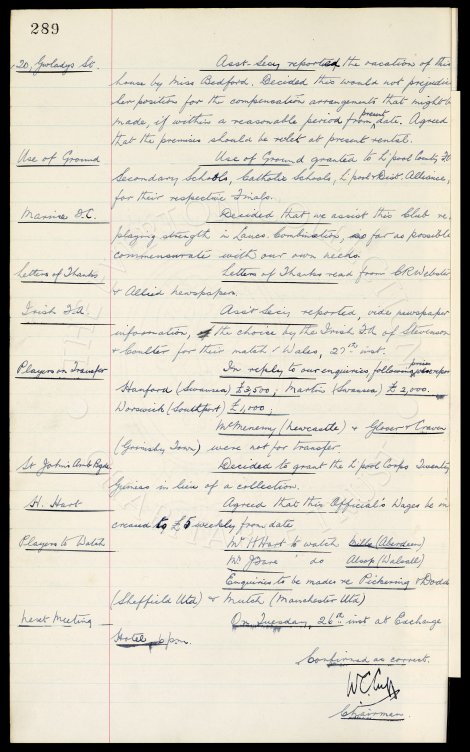 289
20, Gwladys St. Asst-Secy reported the vacation of this
house by Miss Bedford. Decided this would not prejudice
her position for the compensation arrangements that might be
made, if within a reasonable period from present date. Agreed
that the premises should be relet at present rental.
Use of Ground Use of Ground granted to L'pool County F.A.
Secondary Schools, Catholic Schools, L'pool & Dist. Alliance,
for their respective Finals.
Marine F.C. Decided that we assist this Club re
playing strength in Lancs. Combination, so far as possible
commensurate with our own needs.
Letters of Thanks Letters of Thanks read from C.R. Webster
& Allied Newspapers.
Irish F.A. Asst Secy reported, vide newspaper
information, the choice by the Irish F.A. of Stevenson
& Coulter for their match v Wales, 27th inst.
Players on Transfer In reply to our enquiries following prices
Hanford (Swansea) £3,500; Martin (Swansea) £2,000.
Worswick (Southport) £1,000;
McMenemy (Newcastle) & Glover & Craven
(Grimsby Town) were not for transfer
St John's Amb Bgde Decided to grant the L'pool Corps Twenty
Guineas in lieu of a collection.
H. Hart Agreed that this Official's Wages be in
creased to £5 weekly, from date
Players to Watch Mr H Hart to watch Mills (Aberdeen)
Mr J Fare do Alsop (Walsall)
Enquiries to be made re Pickering & Dodds
(Sheffield Utd) & Mutch (Manchester Utd)
Next Meeting On Tuesday, 26th inst at Exchange
Hotel pm.
Confirmed as correct.
W C Cuff
Chairman.